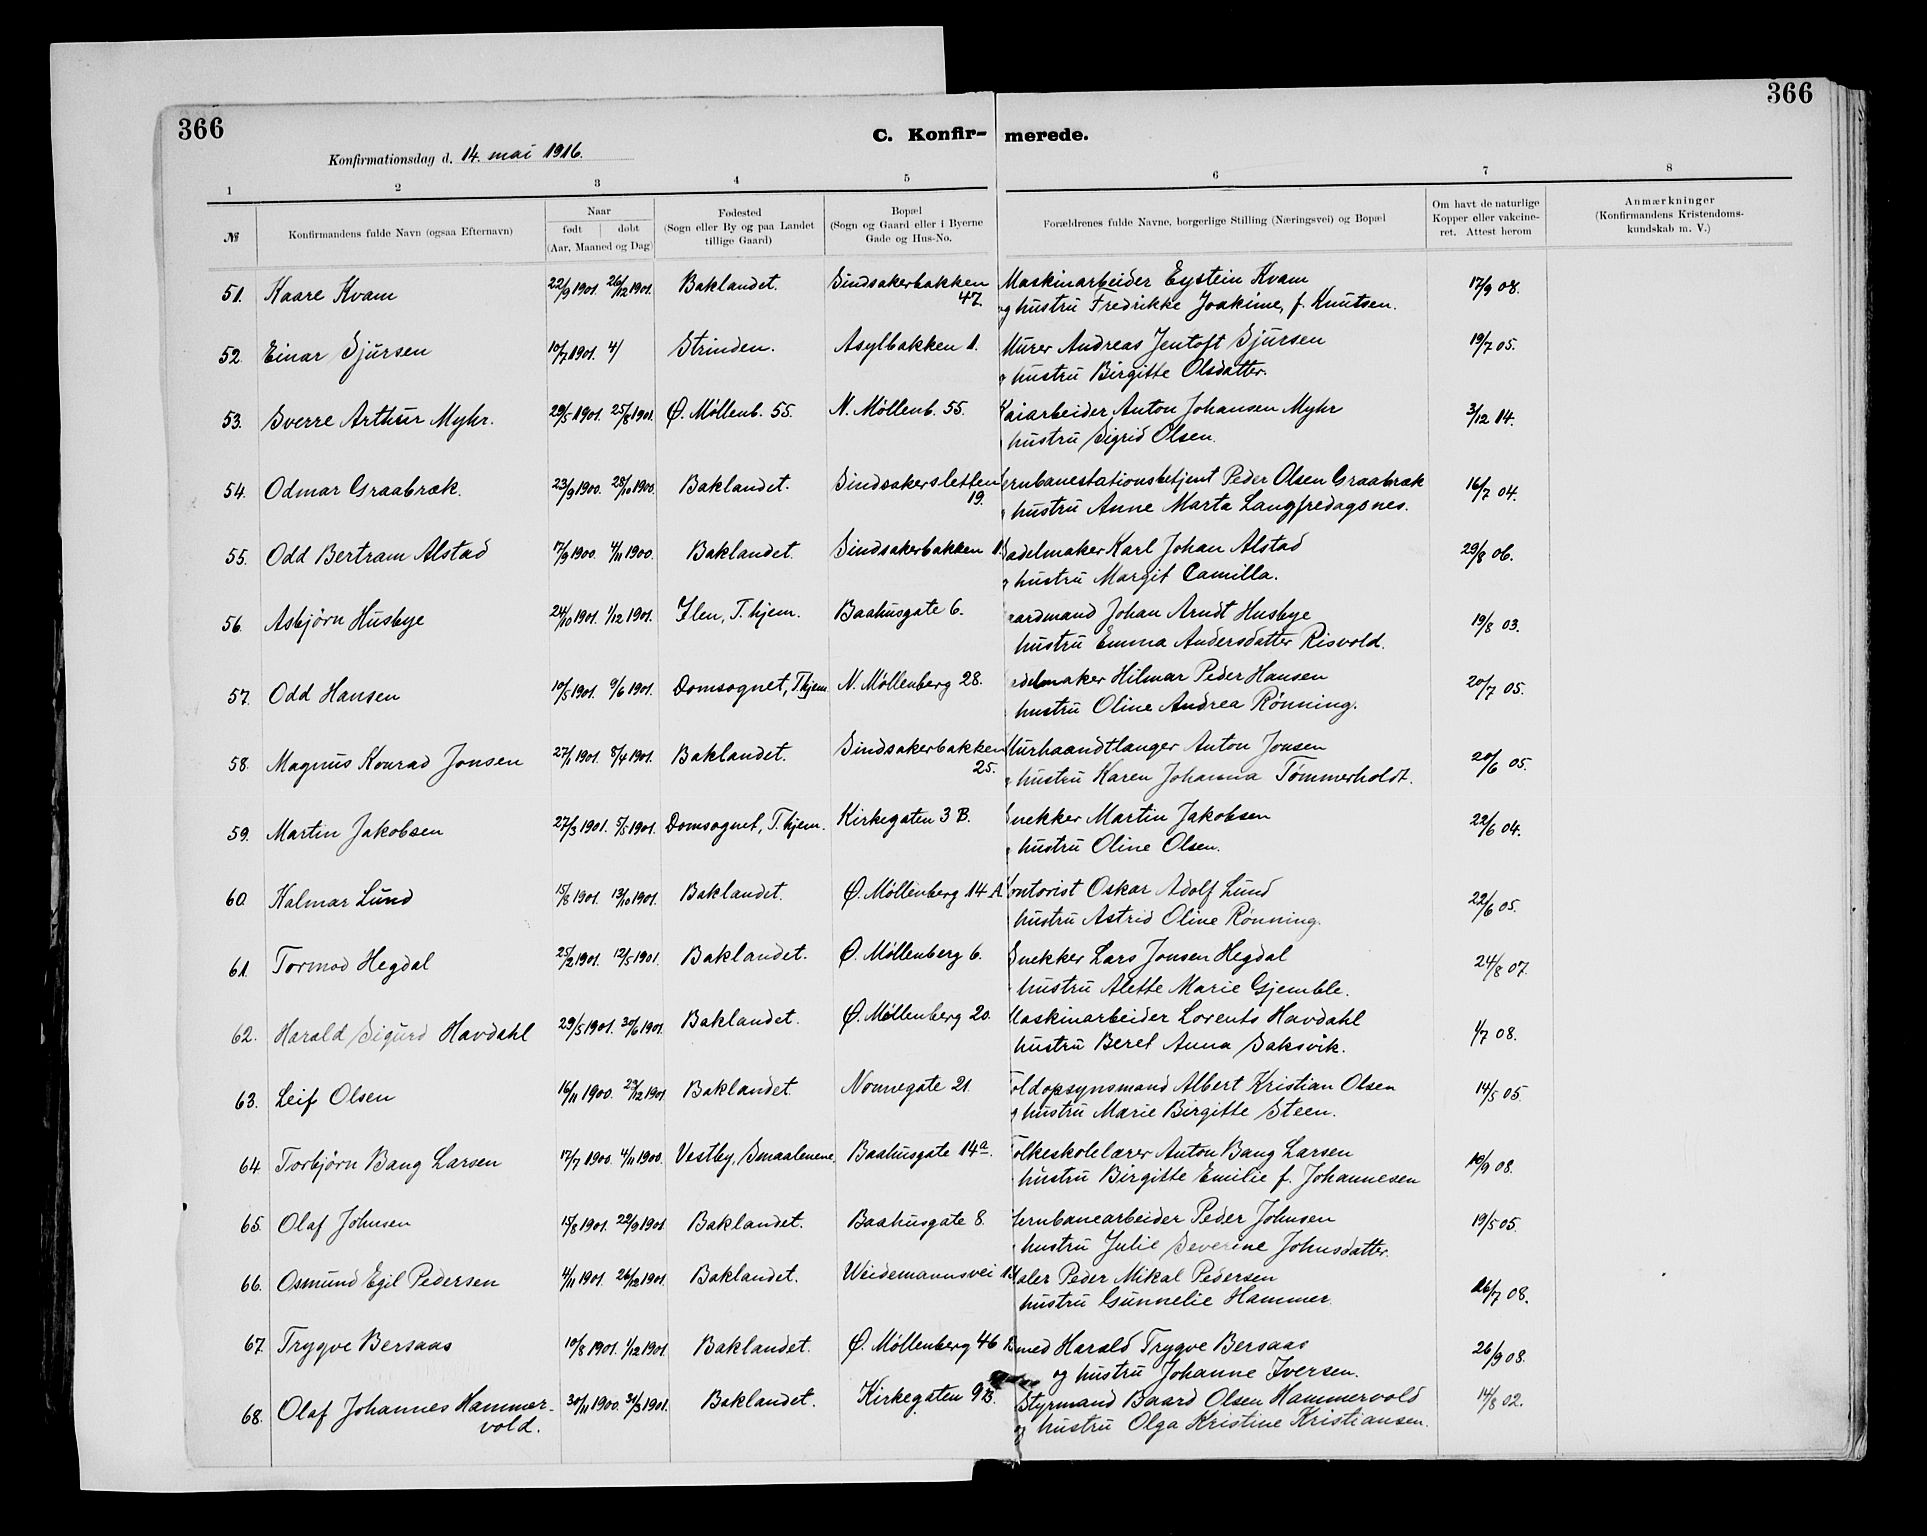 366
366
C. Konfir-
merede.
Konfirmationsdag d. 14. mai 1916.
1 2 3 4 5 6 7 8
№ Konfirmandens fulde Navn (ogsaa Efternavn)
Naar
født døbt
(Aar, Maaned og Dag)
Fødested
(Sogn eller By og paa Landet
tillige Gaard)
Bopæl
(Sogn og Gaard eller i Byerne
Gade og Hus-No.
Forældrenes fulde Navne, borgerlige Stilling (Næringsvei) og Bopæl
Om havt de naturlige
Kopper eller vakcine-
ret. Attest herom
Anmærkninger
(Konfirmandens Kristendoms-
kundskab m. V.)
51. Kaare Kvam 22/9 1901. 26/12 1901. Baklandet. Sindsakerbakken Maskinarbeider Eystein Kvam 17/9 08.
47. og hustru Fredrikke Joakime, f. Knutsen.
52. Einar Sjursen 10/7 1901. 4/ Strinden. Asylbakken 1. Murer Andreas Jentoft Sjursen 19/7 05.
hustru Birgitte Olsdatter.
53. Sverre Arthur Myhr. 29/5 1901. 25/8 1901. Ø. Möllenb. 55. N. Möllenb. 55. Kaiarbeider Anton Johansen Myhr 3/12 14.
hustru Sigrid Olsen.
54. Odmar Graabræk. 23/9 1900. 28/10 1900. Baklandet. Sindsakersletten ernbanestationsbetjent Peder Olsen Graabræk 16/7 04.
19. hustru Anne Marta Langfredagsnes.
55. Odd Bertram Alstad 17/9 1900. 4/11 1900. Baklandet. Sindsakerbakken 1. Sadelmaker Karl Johan Alstad 29/8 06.
hustru Margit Camilla.
56. Asbjørn Husbye 24/10 1901. 1/12 1901. Ilen, T.hjem. Baahusgate 6. aardmand Johan Arndt Husbye 19/8 03.
hustru Emma Andersdatter Risvold.
57. Odd Hansen 10/5 1901. 9/6 1901. Domsognet, Thjem N. Møllenberg 28. adelmaker Hilmar Peder Hansen 20/7 05.
hustru Oline Andrea Rønning.
58. Magnus Konrad Jonsen 27/1 1901. 8/4 1901. Baklandet. Sindsakerbakken Murhaandtlanger Anton Jonsen 20/6 05.
25. hustru Karen Johanna Tømmerholdt.
59. Martin Jakobsen 27/3 1901. 5/5 1901. Domsognet, T.hjem. Kirkegaten 3 B. Snekker Martin Jakobsen 22/6 04.
hustru Oline Olsen.
60. Kalmar Lund 15/8 1901. 13/10 1901. Baklandet. Ø. Möllenberg 14 A. Kontorist Oskar Adolf Lund 22/6 05.
hustru Astrid Oline Rønning.
61. Tormod Hegdal 25/2 1901. 12/5 1901. Baklandet. Ø. Möllenberg 6. Snekker Lars Jonsen Hegdal 24/8 07.
hustru Alette Marie Gjemble.
62. Harald Sigurd Havdahl 29/5 1901. 30/6 1901. Baklandet. Ø. Möllenberg 20. Maskinarbeider Lorents Havdahl 1/7 08.
hustru Beret Anna Saksvik.
63. Leif Olsen 16/11 1900. 29/12 1901 Baklandet. Nonnegate 21 Toldopsynsmand Albert Kristian Olsen 14/5 05.
hustru Marie Birgitte Steen.
64. Torbjørn Bang Larsen 17/7 1900. 4/11 1900. Vestby, Smaalenene. Baahusgate 14a. Folkeskolelærer Anton Bang Larsen 10/9 08.
hustru Birgitte Emilie f. Johannesen
65. Olaf Johnsen 15/8 1901. 22/9 1901. Baklandet. Baahusgate 8. Jernbanearbeider Peder Johnsen 19/5 05.
hustru Julie Severine Johnsdatter.
66. Osmund Egil Pedersen 4/11 1901. 26/12 1901. Baklandet. Weidemannsvei aler Peder Mikal Pedersen 26/7 08.
hustru Gunnelie Hammer
67. Trygve Bersaas 10/8 1901. 1/12 1901. Baklandet. Ø. Möllenberg 46 B med Harald Trygve Bersaas 26/9 08.
og hustru Johanne Iversen.
68. Olaf Johannes Hammer- 30/11 1900. 31/3 1901. Baklandet. Kirkegaten 9 B. Styrmand Baard Olsen Hammervold 14/8 02.
vold. og hustru Olga Kristine Kristiansen.